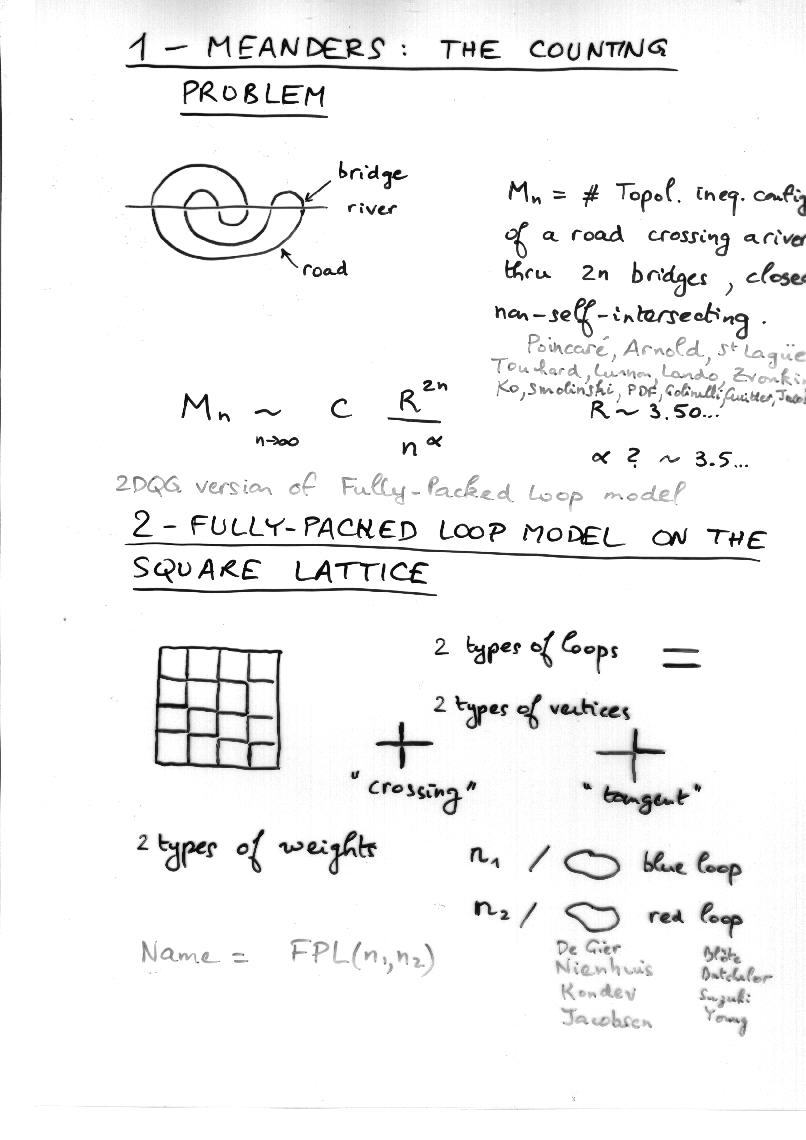 1 - MEANDERS: THE COUNTING
PROBLEM
bridge
river
road
Mn = # Topol. ineq. config
of a road crossing a river
thru 2n bridges, close
non-self-intersecting.
Poincaré, Arnold, St Lagüe
Touchard, Lunnon, Lando, Zvonki
Ko, Smolinski, PDF, Golinelli, Guitter, Jaco
Mn ~ C R^2n / n^α
n→∞
R ~ 3.50...
α ? ~ 3.5...
2DQG version of Fully-Packed Loop model
2 - FULLY-PACKED LOOP MODEL ON THE
SQUARE LATTICE
2 types of loops =
2 types of vertices
"crossing"
"tangent"
2 types of weights
n1 / blue loop
n2 / red loop
Name = FPL(n1,n2)
De Gier Blöte
Nienhuis Batchelor
Kondev Suzuki
Jacobsen Young